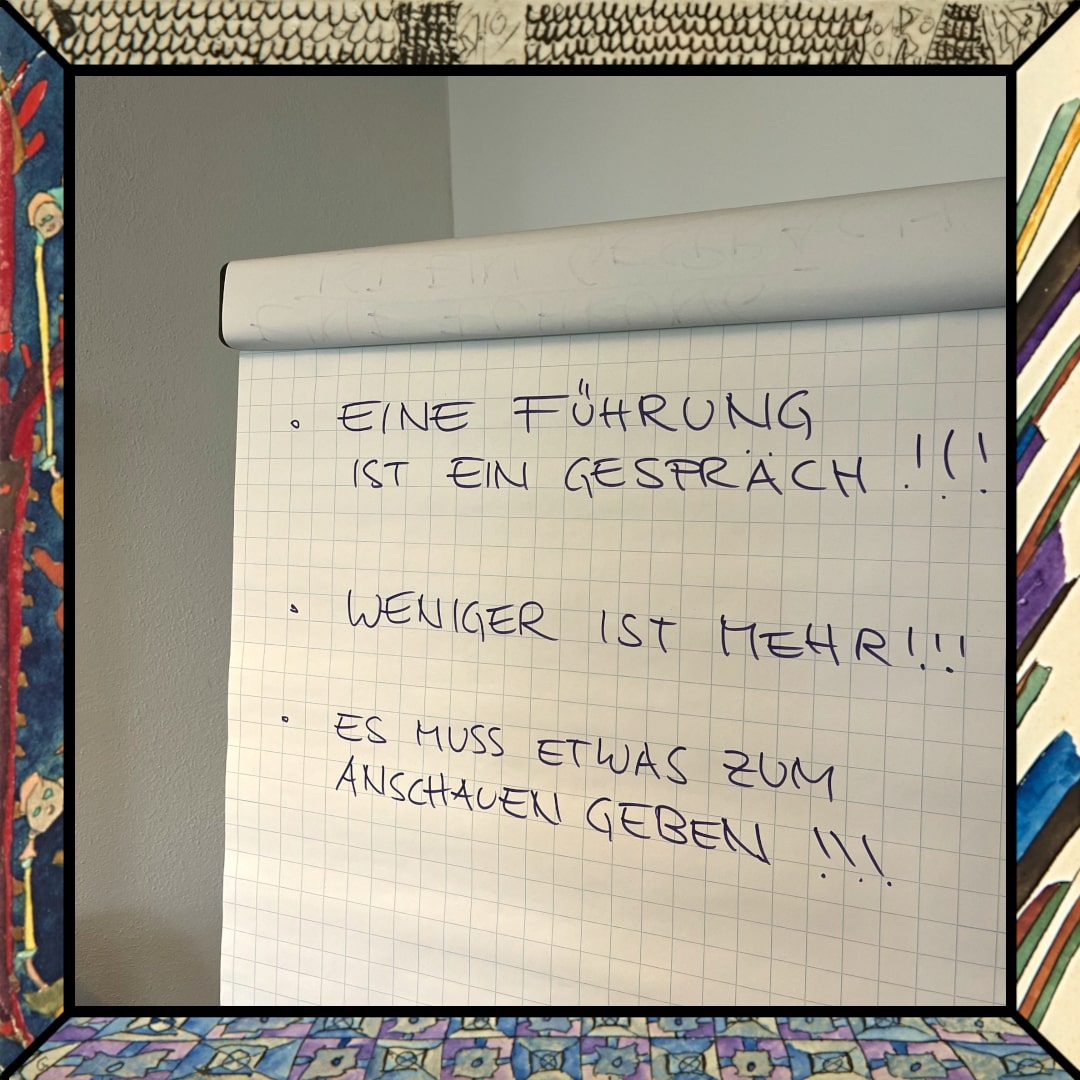 • EINE FÜHRUNG
IST EIN GESPRÄCH !!!
• WENIGER IST MEHR!!!
• ES MUSS ETWAS ZUM
ANSCHAUEN GEBEN !!!